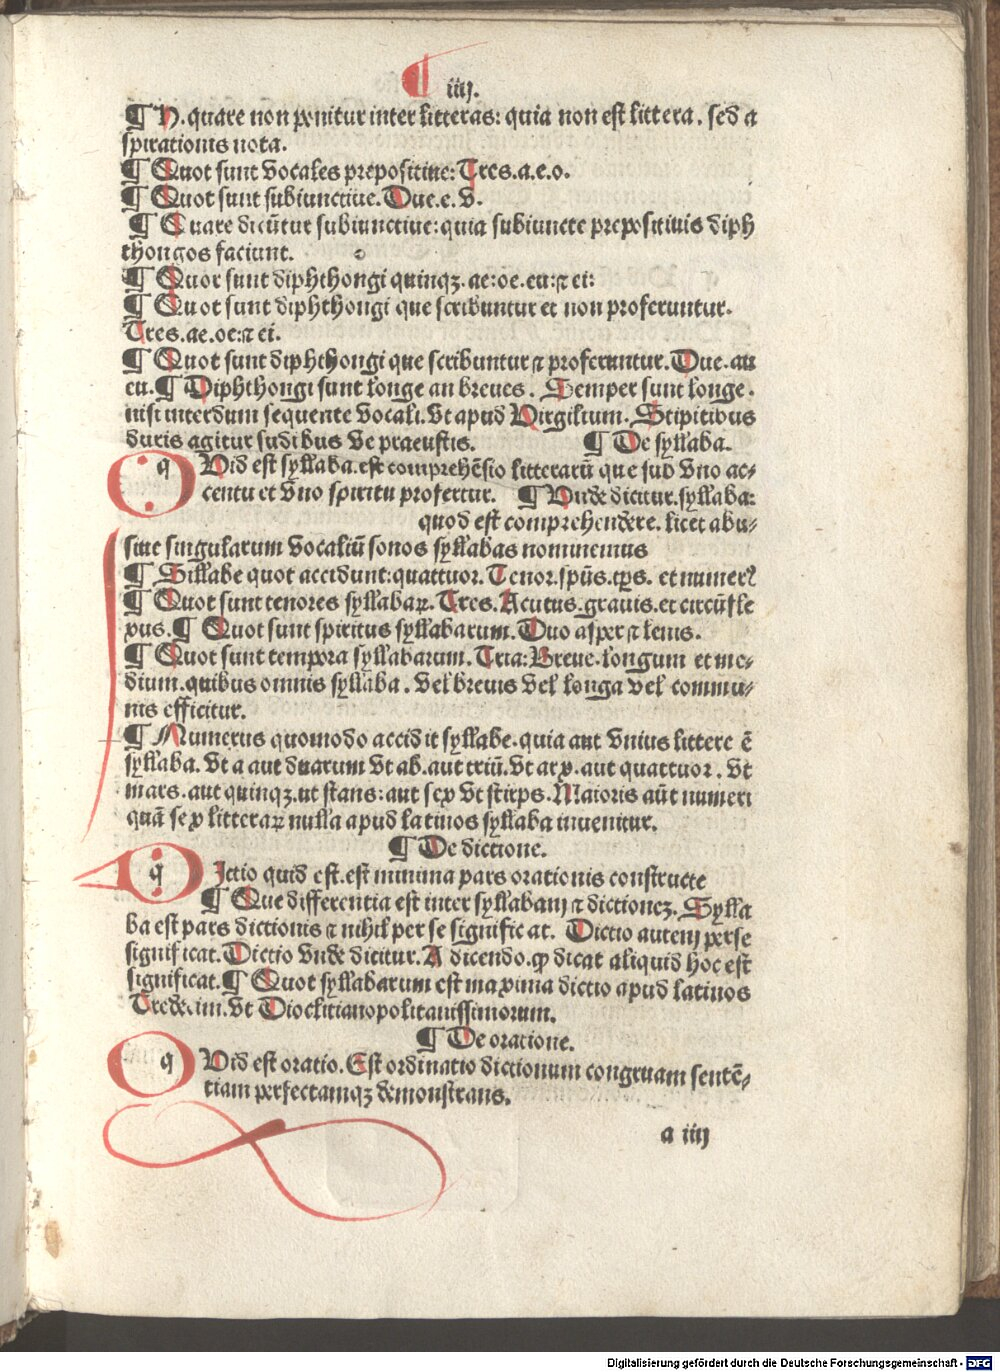 ¶ iiij.
¶ H. quare non ponitur inter litteras: quia non est littera. sed a
spirationis nota.
¶ Quot sunt vocales prepositiue: Tres. a. e. o.
¶ Quot sunt subiunctiue. Due. e. v.
¶ Quare dicũtur subiunctiue: quia subiuncte prepositiuis diph
thongos faciunt.
¶ Quot sunt diphthongi quinqꝫ. ae: oe. eu: ⁊ ei:
¶ Quot sunt diphthongi que scribuntur et non proferuntur.
Tres. ae. oe: ⁊ ei.
¶ Quot sunt diphthongi que scribuntur ⁊ proferuntur. Due. au
eu. ¶ Diphthongi sunt longe an breues. Semper sunt longe.
nisi interdum sequente vocali. vt apud Virgilium. Stipitibus
duris agitur sudibus ve praeustis. ¶ De syllaba.
qVid est syllaba. est comprehẽsio litterarũ que sub vno ac⸗
centu et vno spiritu profertur. ¶ Vnde dicitur. syllaba:
quod est comprehendere. licet abu⸗
siue singularum vocaliũ sonos syllabas nominemus
¶ Sillabe quot accidunt: quattuor. Tenor. spũs. tp̃s. et numerꝰ
¶ Quot sunt tenores syllabaꝝ. Tres. Acutus. grauis. et circũfle
xus. ¶ Quot sunt spiritus syllabarum. Duo asper ⁊ lenis.
¶ Quot sunt tempora syllabarum. Tria: Breue. longum et me⸗
dium. quibus omnis syllaba. vel breuis vel longa vel commu⸗
nis efficitur.
¶ Numerus quomodo accidit syllabe. quia aut vnius littere ẽ
syllaba. vt a aut duarum vt ab. aut triũ. vt arx. aut quattuor. vt
mars. aut quinqꝫ. ut stans: aut sex vt stirps. Maioris aũt numeri
quã sex litteraꝝ nulla apud latinos syllaba inuenitur.
¶ De dictione.
q Ictio quid est. est minima pars orationis constructe
¶ Que differentia est inter syllabam ⁊ dictioneꝫ. Sylla
ba est pars dictionis ⁊ nihil per se significat. Dictio autem per se
significat. Dictio vnde dicitur. A dicendo. ꝙ dicat aliquid hoc est
significat. ¶ Quot syllabarum est maxima dictio apud latinos
Tredecim. vt Dioclitianopolitanissimorum.
¶ De oratione.
qVid est oratio. Est ordinatio dictionum congruam sentẽ⸗
tiam perfectamqꝫ demonstrans.
a iiij
Digitalisierung gefördert durch die Deutsche Forschungsgemeinschaft - DFG